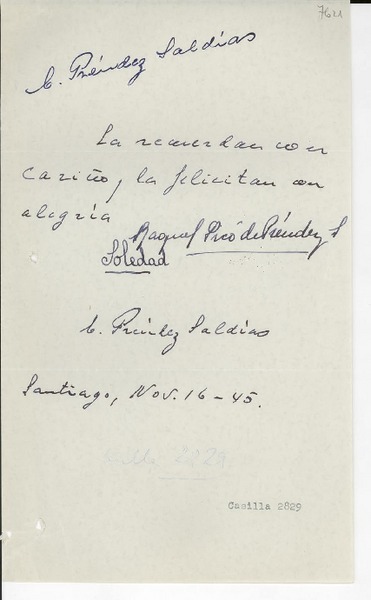 7621
C. Préndez Saldías
La recuerdan con
cariño, la felicitan con
alegría
Raquel Picó de Préndez S
Soledad
C. Préndez Saldías
Santiago, Nov. 16 - 45.
Casilla 2829
Casilla 2829